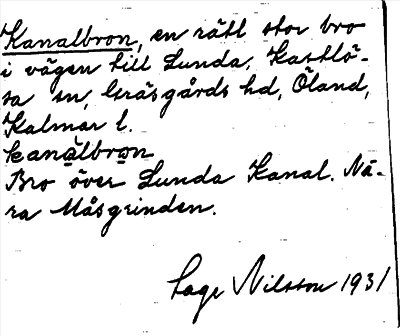 Kanalbron, en rätt stor bro
i vägen till Lunda, Kastlö-
sa sn, Gräsgårds hd, Öland,
Kalmar l.
kanalbron
Bro över Lunda Kanal. Nä-
ra Måsgrinden.
Sage Nilsson 1931